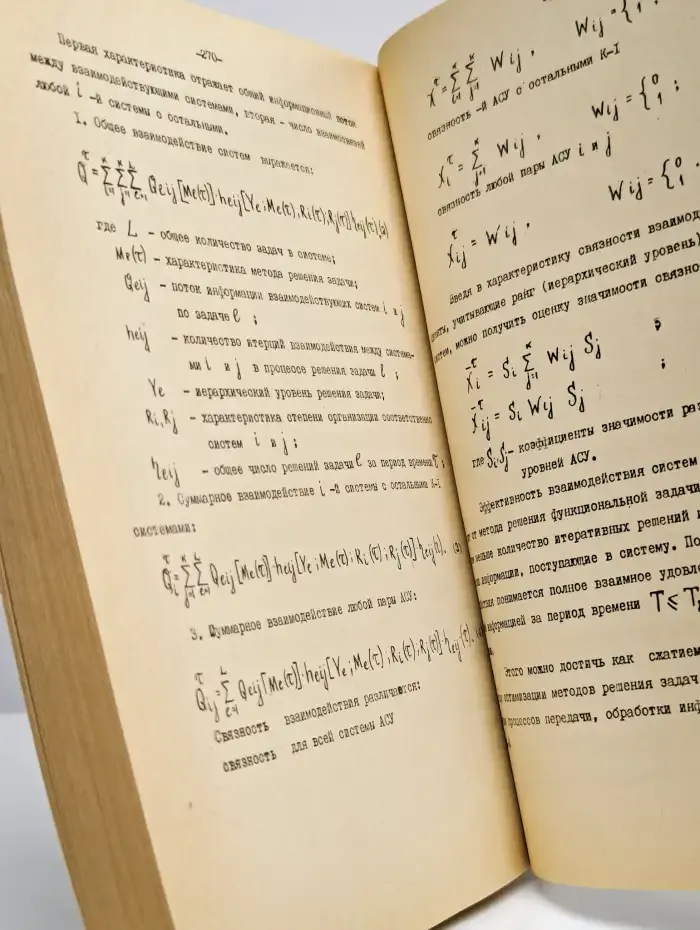 -270-
Первая характеристика отражает общий информационный поток
между взаимодействующими системами, вторая - число взаимосвязей
любой i -й системы с остальными.
1. Общее взаимодействие систем выражается:
Q^τ = Σ^K_{i=1} Σ^K_{j=1} Σ^L_{e=1} Qeij[Me(τ)]·heij[Ye; Me(τ), Ri(τ); Rj(τ)] ηeij(τ) (а)
где L - общее количество задач в системе;
Me(τ) - характеристика метода решения задачи;
Qeij - поток информации взаимодействующих систем i и j
по задаче ℓ ;
heij - количество итераций взаимодействия между система-
ми i и j в процессе решения задачи ℓ ;
Ye - иерархический уровень решения задачи;
Ri, Rj - характеристика степени организации соответственно
систем i и j ;
ηeij - общее число решений задачи ℓ за период времени τ ;
2. Суммарное взаимодействие i -й системы с остальными K-I
системами:
Qi^τ = Σ^K_{j=1} Σ^L_{e=1} Qeij[Me(τ)]·heij[Ye; Me(τ); Ri(τ); Rj(τ)]·ηeij(τ).
3. Суммарное взаимодействие любой пары АСУ:
Qij^τ = Σ^L_{e=1} Qeij[Me(τ)]·heij[Ye; Me(τ), Ri(τ); Rj(τ)]·ηeij(τ).
Связность взаимодействия различается:
связность для всей системы АСУ
X^τ = Σ^K_{i=1} Σ^K_{j=1} Wij , Wij = {0 1 ;
связность -й АСУ с остальными K-I
Xi^τ = Σ^K_{j=1} Wij , Wij = {0 1 ;
связность любой пары АСУ i и j
Xij^τ = Wij , Wij = {0 1
Введя в характеристику связности взаимод
учитывающие ранг (иерархический уровень)
можно получить оценку значимости связно
X̄i^τ = Si Σ^K_{j=1} Wij Sj ;
X̄ij^τ = Si Wij Sj ;
где Si Sj - коэффициенты значимости раз
уровней АСУ.
Эффективность взаимодействия систем
от метода решения функциональной задачи
меньше количество итеративных решений и
информации, поступающие в систему. По
понимается полное взаимное удовле
информацией за период времени T ⩽ T
Этого можно достичь как сжатием
оптимизации методов решения задач
процессов передачи, обработки инф